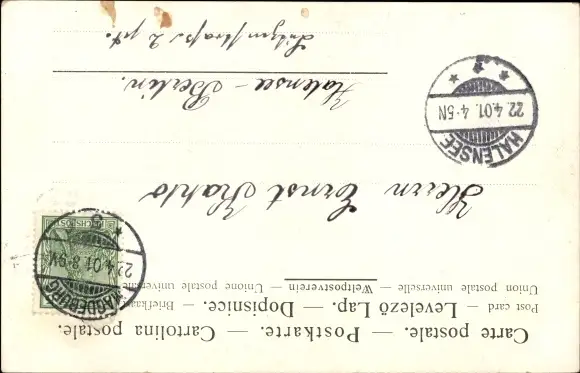 Carte postale. — Postkarte. — Cartolina postale.
Post card — Levelező Lap. — Dopisnice. — Briefkaa
Union postale universelle — Weltpostverein — Unione postale universa
Herrn Ernst Kahlo
Halensee - Berlin.
straße 2 pt.
MAGDEBURG
22.4.01.8-9V.
* 5
HALENSEE
22.4.01. 4-5N
* 1 *